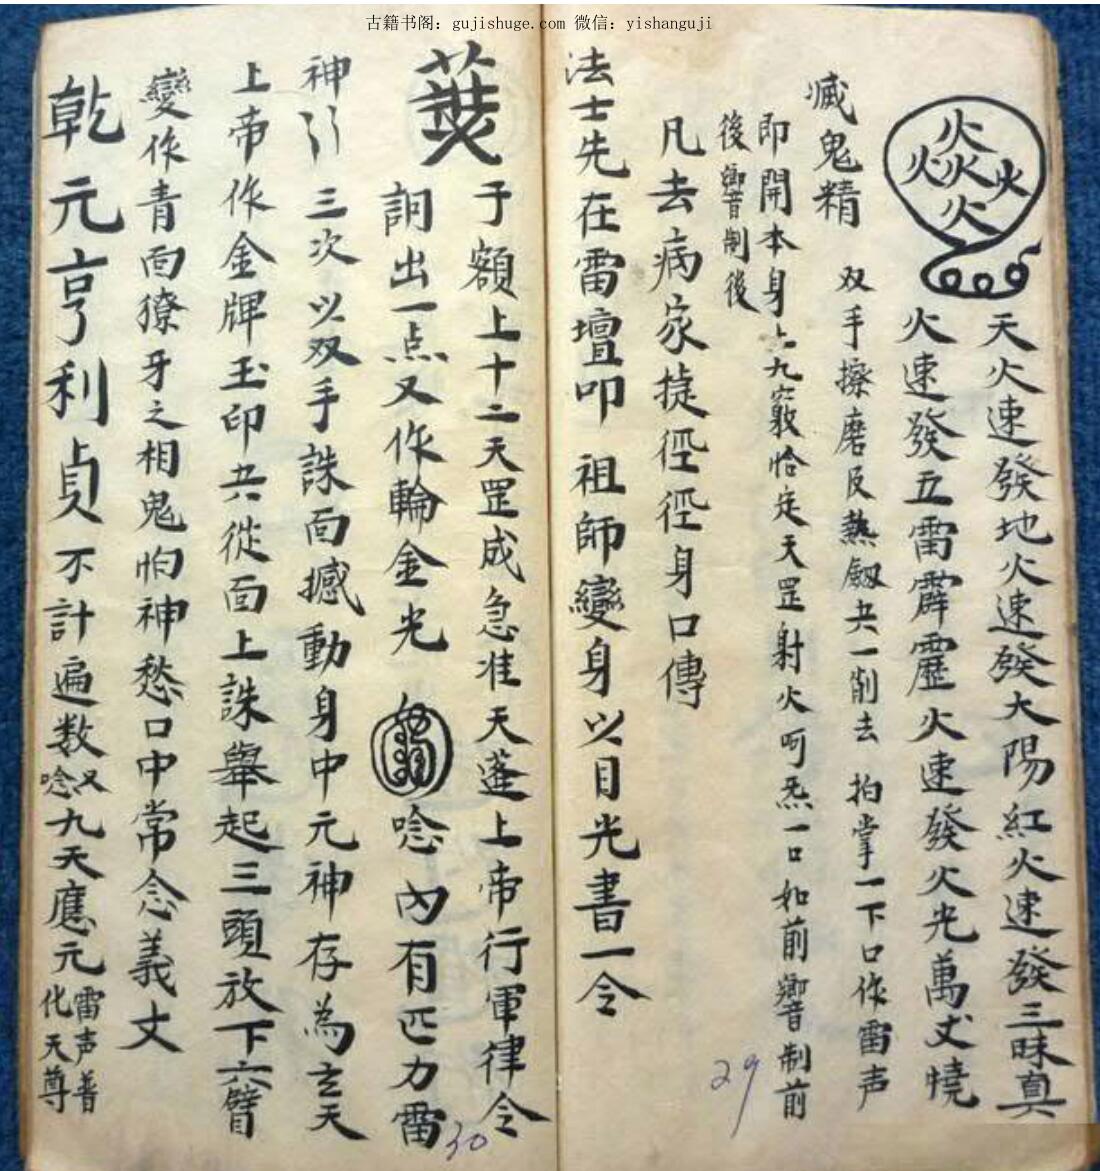 古籍书阁：gujishuge.com 微信：yishanguji
火火火火火
天火速發地火速發太陽紅火速發三昧真
火速發五雷霹靂火速發火光萬丈燒
滅鬼精
双手擦磨反熱劔共一削去 拍掌一下口作雷声
即開本身上九竅恰定天罡射火呵炁一口如前響制前
後響制後
凡去病家捷徑徑身口傳
法士先在雷壇叩 祖師變身以目光書一令
于額上十二天罡成急准天蓬上帝行軍律令
詞出一点又作輪金光 唸 內有匹力雷
神 三次以双手誅面撼動身中元神存為玄天
上帝作金牌玉印共從面上誅舉起三頭放下六臂
變作青面獠牙之相鬼怕神愁口中常念義丈
乾元亨利貞不計遍数又唸九天應元雷声普化天尊
29
30